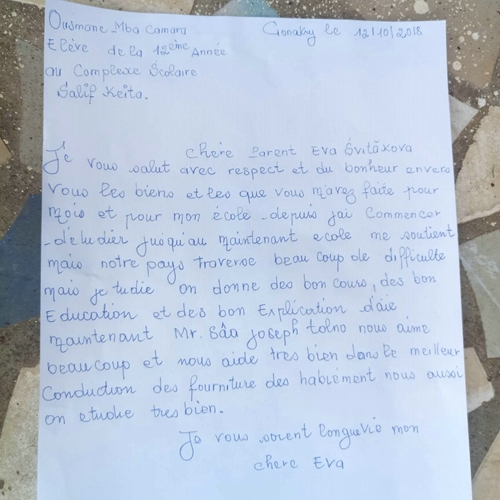 Ousmane Mba Camara
Conakry le 12/10/2018
Elève de la 12ème Année
au Complexe Scolaire
Salif Keita.
chere Parent Eva Svitākova
Je vous salut avec respect et du bonheur envers
vous les biens et les que vous m'avez faite pour
mois et pour mon école depuis jai Commencer
détudier jusqu'au maintenant ecole me soutient
mais notre pays traverse beau coup de difficulte
mais je tudie on donne des bon cours, des bon
Education et des bon Explication d'aie
maintenant Mr. Sâa Joseph Tolno nous aime
beaucoup et nous aide tres bien dans le meilleur
Conduction des fourniture des hablement nous aussi
on etudie tres bien.
Je vous soient longue vie mon
chere Eva